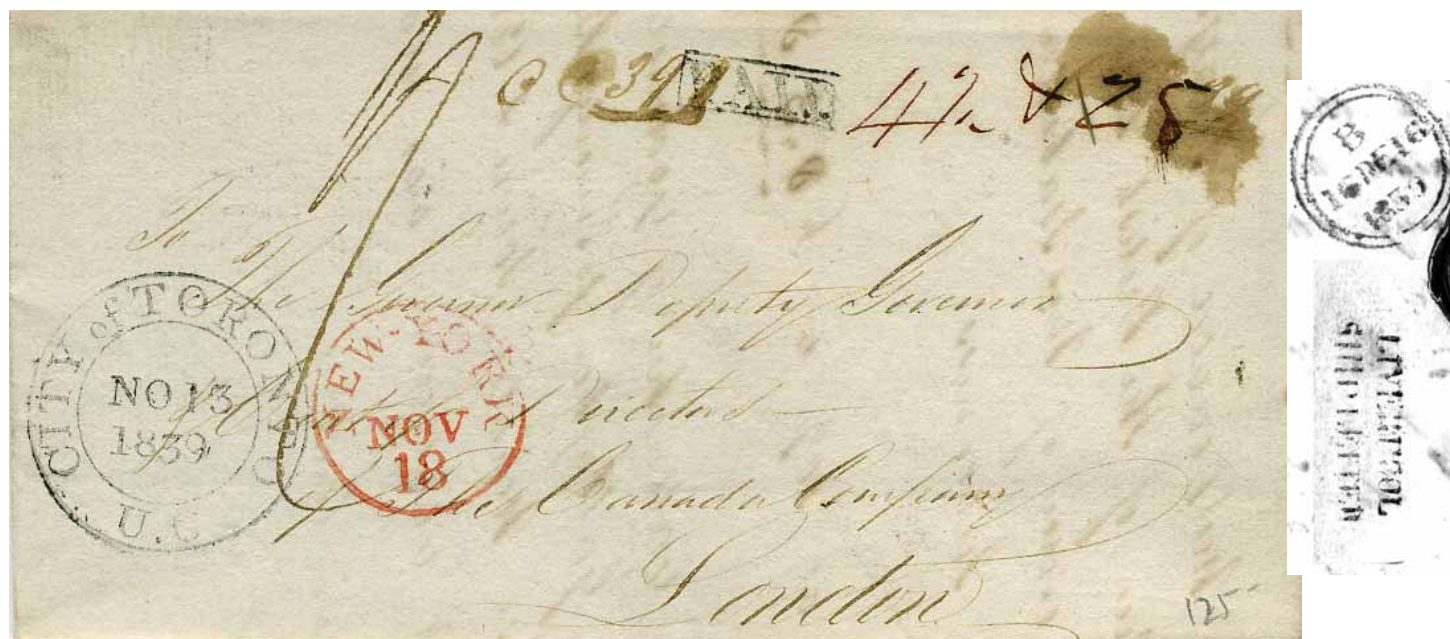 CC 39
PAID
4½ & 25
To
The Governor Deputy Governor
Directors
of The Canada Company
London
CITY of TORONTO
NO 13
1839
U.C
NEW-YORK
NOV
18
125-
B
16 DE 16
1839
LIVERPOOL
SHIP LETTER